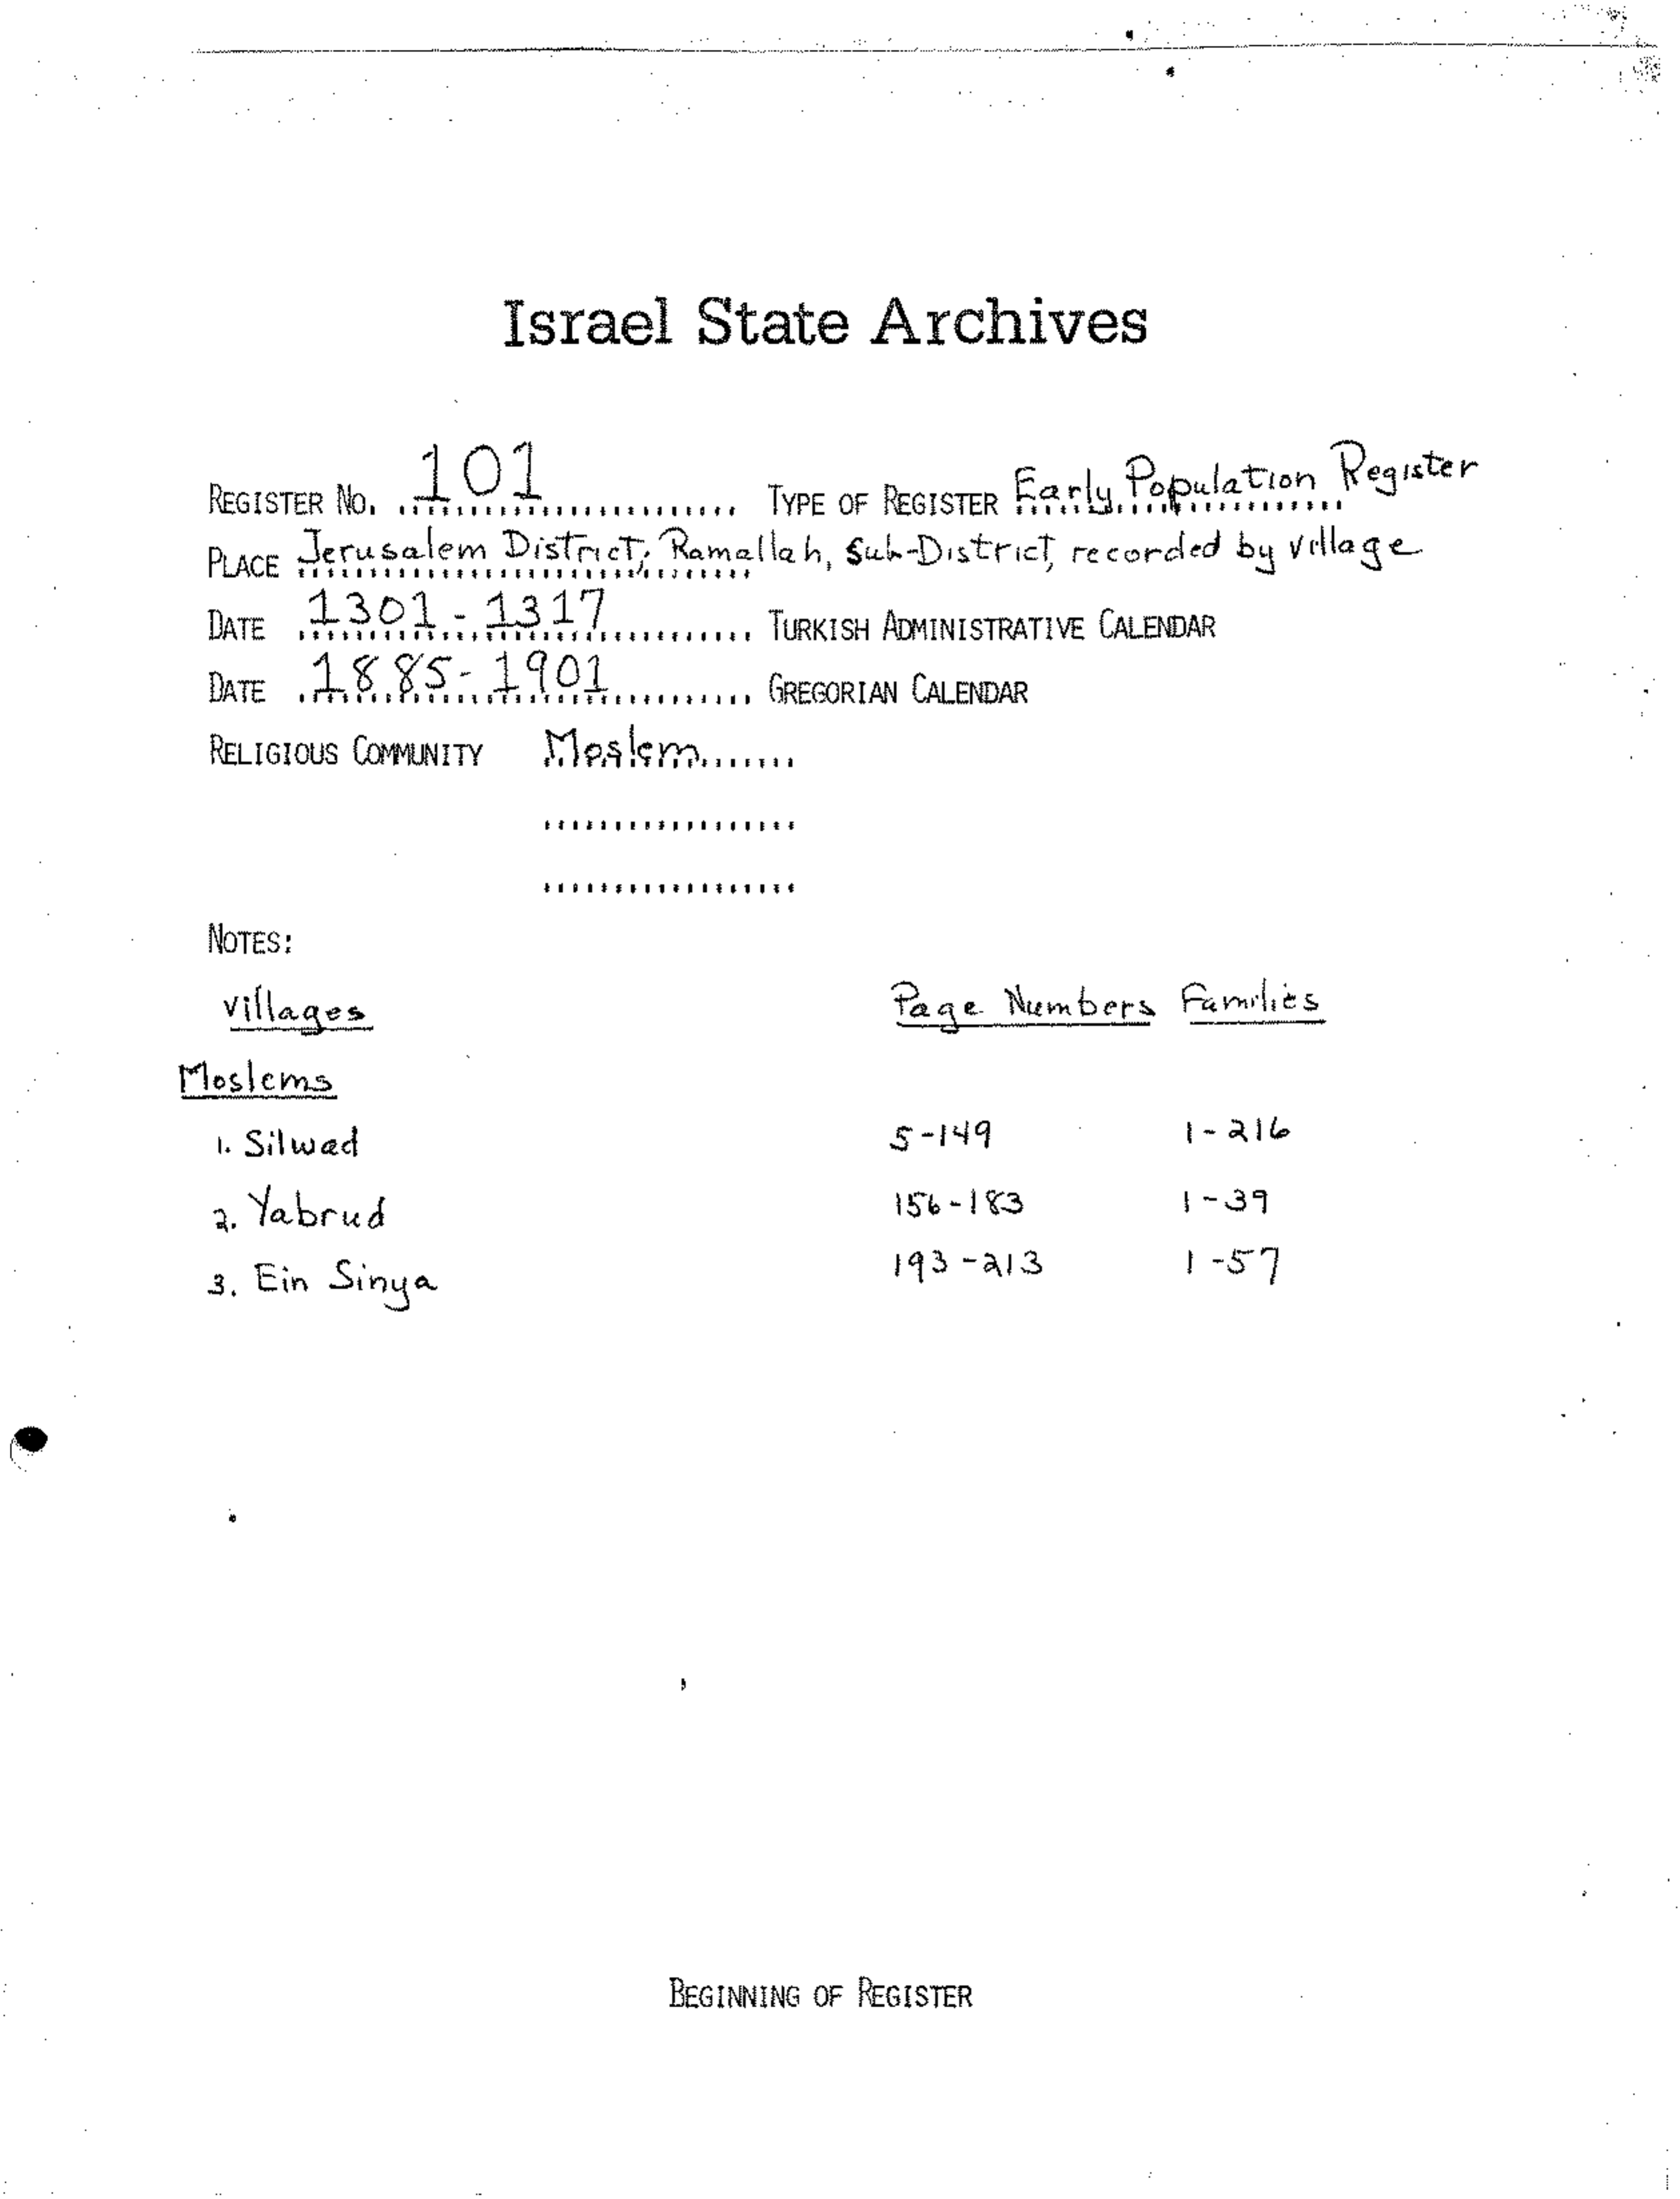 Israel State Archives
REGISTER NO. 101 TYPE OF REGISTER Early Population Register
PLACE Jerusalem District; Ramallah, Sub-District, recorded by village
DATE 1301-1317 TURKISH ADMINISTRATIVE CALENDAR
DATE 1885-1901 GREGORIAN CALENDAR
RELIGIOUS COMMUNITY Moslem
NOTES:
Villages Page Numbers Families
Moslems
1. Silwad 5-149 1-216
2. Yabrud 156-183 1-39
3. Ein Sinya 193-213 1-57
BEGINNING OF REGISTER